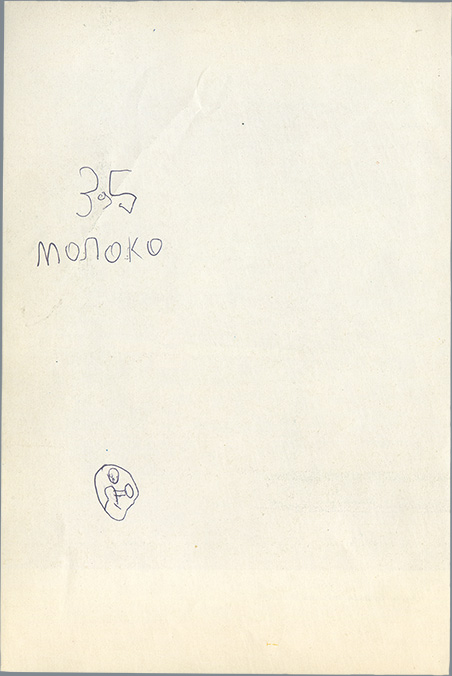 3,5
МОЛОКО